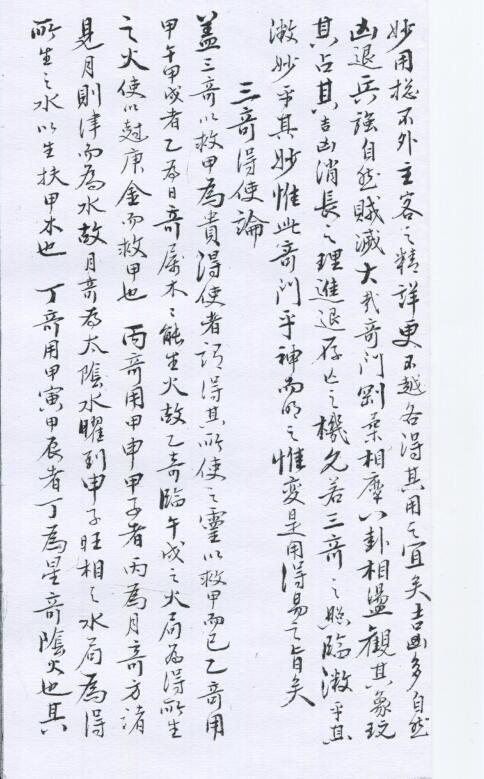 妙用总不外主客之精詳更不越各得其用之宜矣吉凶多自然
凶退兵強自然賊滅大哉奇门剛柔相摩八卦相盪觀其象玩
其占其吉凶消長之理進退存亡之機允若三奇之照臨微乎其
微妙乎其妙惟此奇门乎神而明之惟变是用得易之旨矣
三奇得使論
蓋三奇以救甲為貴得使者謂得其所使之靈以救甲而已乙奇用
甲午甲戌者乙為日奇屬木木能生火故乙奇臨午戌之火局為得所生
之火使以尅庚金而救甲也 丙奇用甲申甲子者丙為月奇方諸
見月則津而為水故月奇為太陰水曜到申子旺相之水局為得
所生之水以生扶甲木也 丁奇用甲寅甲辰者丁為星奇陰火也其